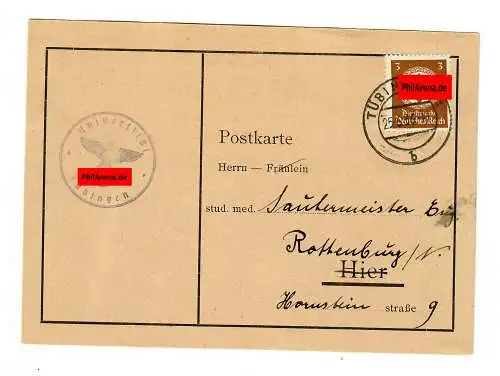 Universität
PhilArena.de
Tübingen
3 3
PhilArena.de
Deutsches Reich
TÜBIN
25.
b
Postkarte
Herrn — Fräulein
stud. med. Sautermeister Eug.
Rottenburg/N.
Hier
Hornstein straße 9